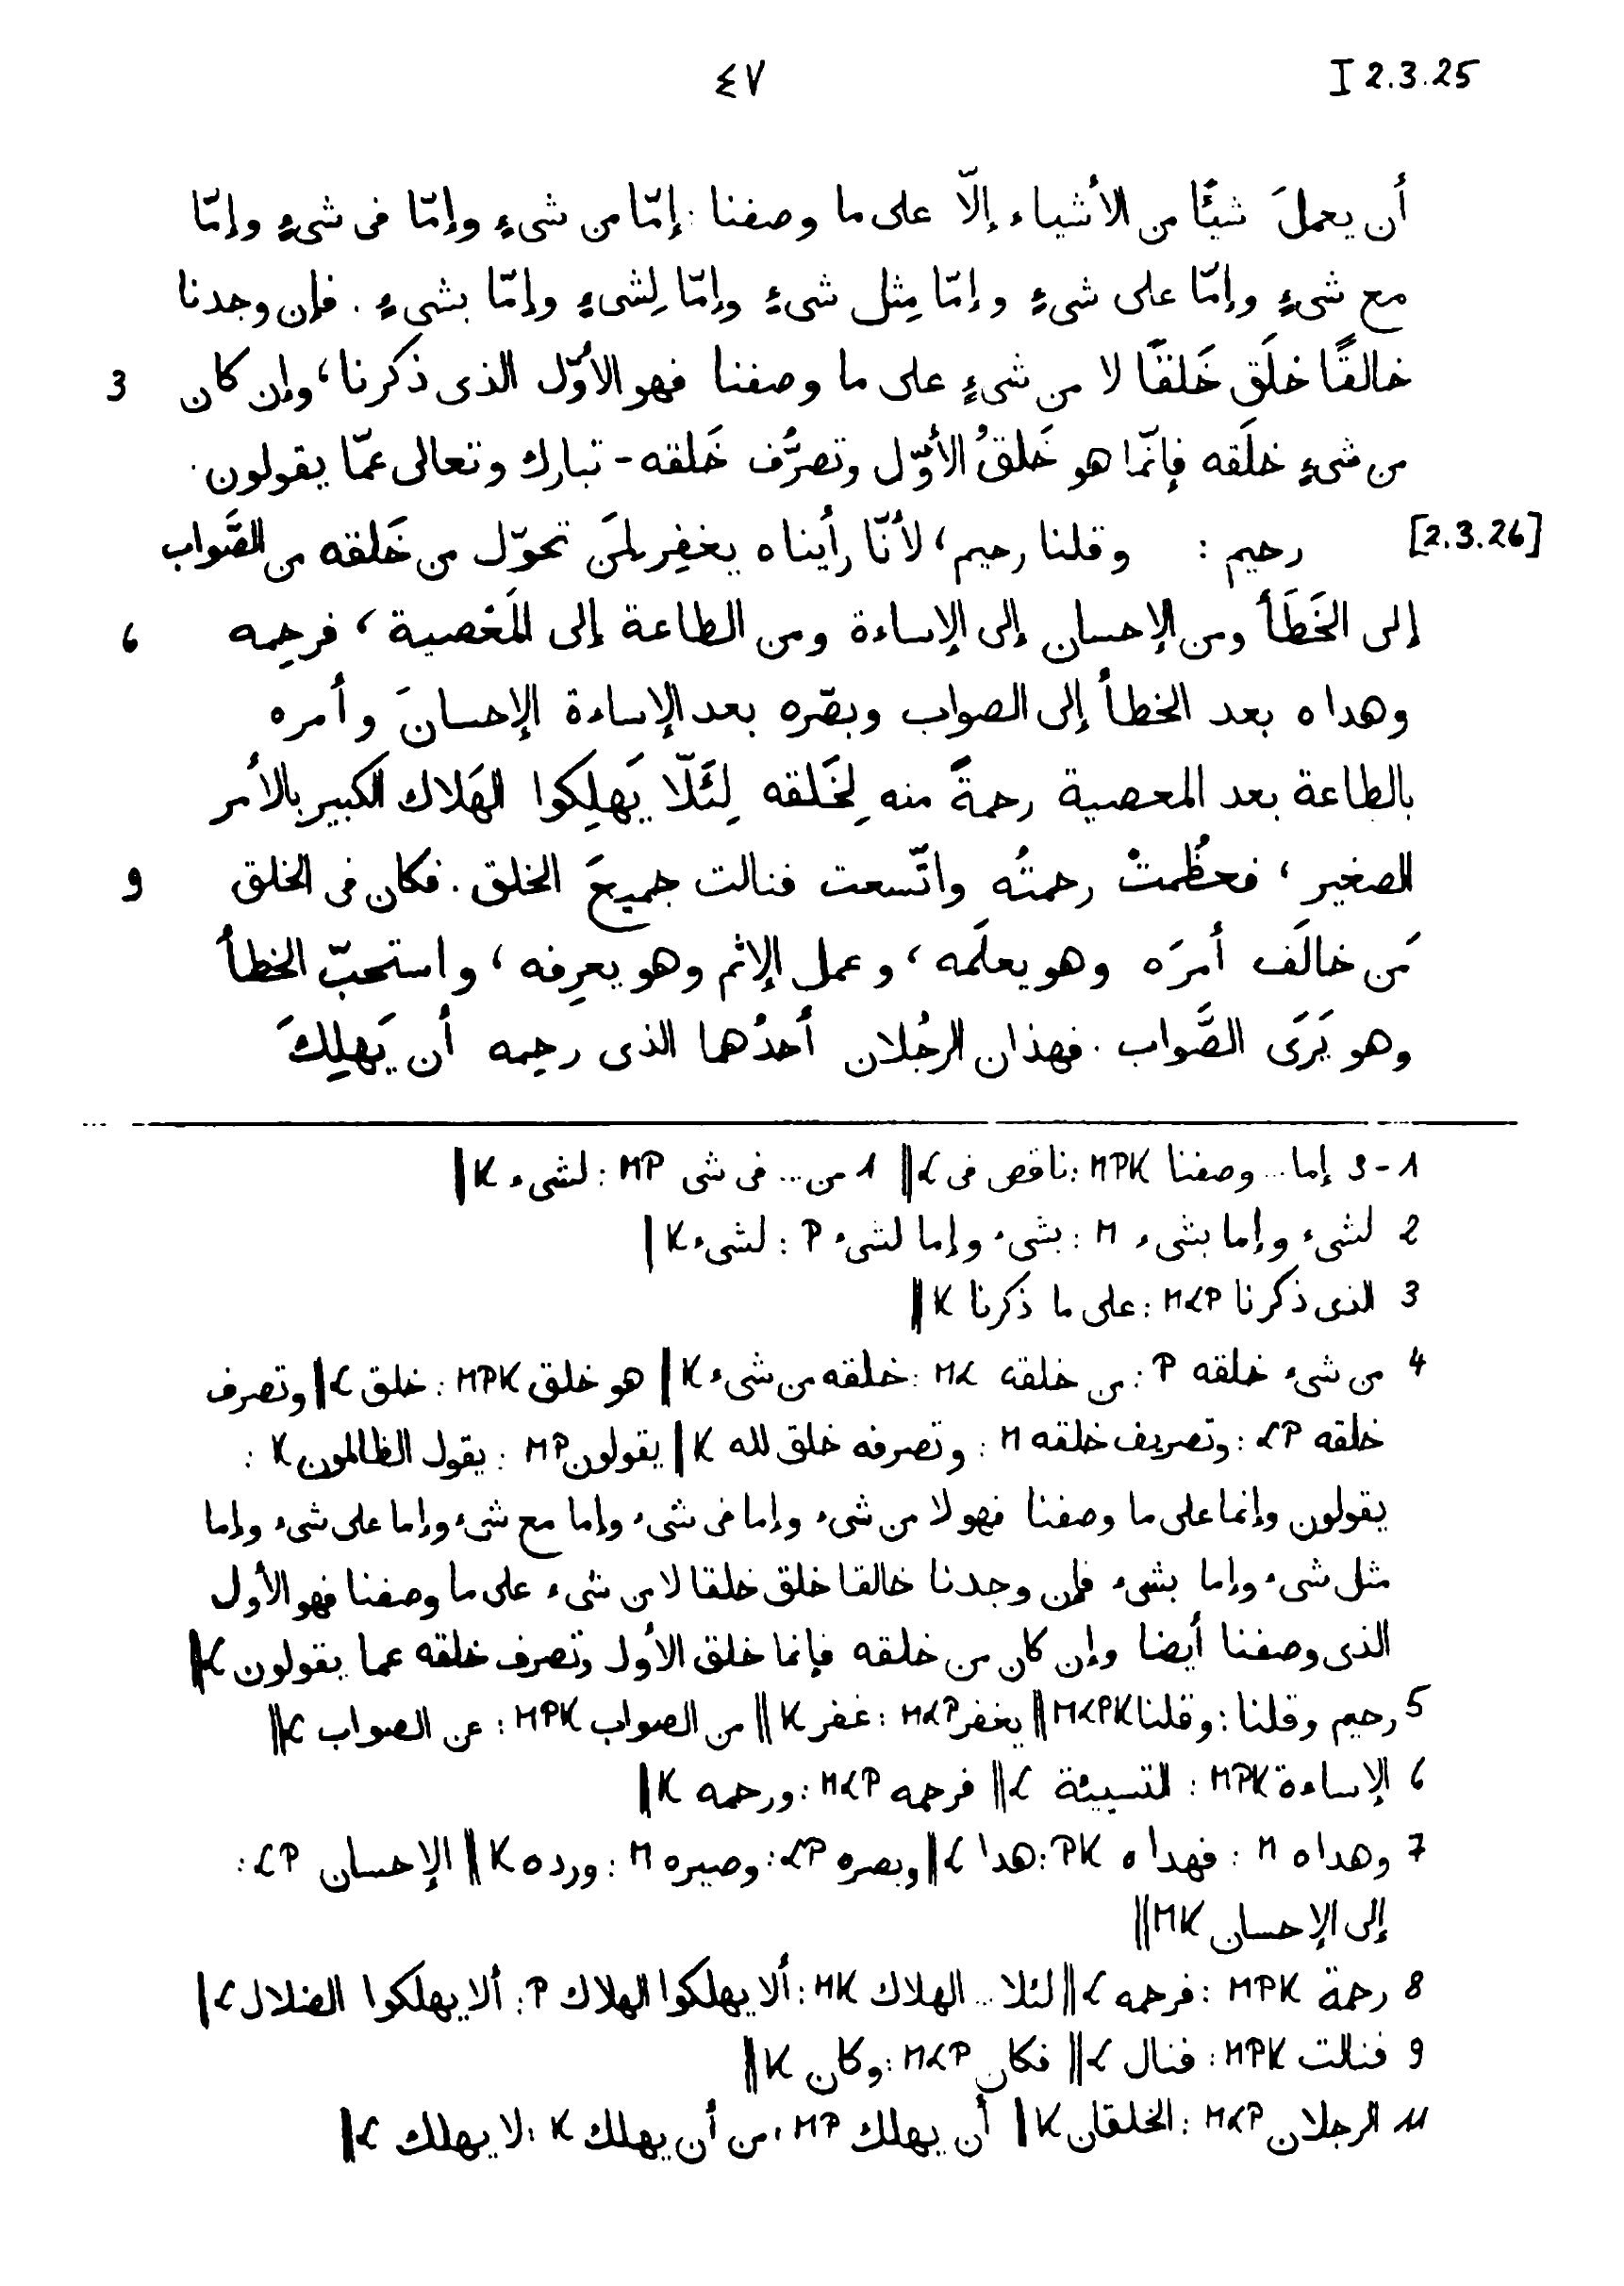 ٤٧ I 2.3.25
أن يعملَ شيئًا من الأشياء إلّا على ما وصفنا: إمّا من شىءٍ وإمّا فى شىءٍ وإمّا
مع شىءٍ وإمّا على شىءٍ وإمّا مِثل شىءٍ وإمّا لِشىءٍ وإمّا بشىءٍ. فإن وجدنا
خالقًا خلَق خَلقًا لا من شىءٍ على ما وصفنا فهو الأوّل الذى ذكرنا، وإن كان 3
من شىءٍ خلَقه فإنّما هو خَلقُ الأوّل وتصرُّف خَلقه - تبارك وتعالى عمّا يقولون.
[2.3.26] رحيم: وقلنا رحيم، لأنّا رأيناه يغفِر لمَن تحوّل من خَلقه من الصَّواب
إلى الخَطَأ ومن الإحسان إلى الإساءة ومن الطاعة إلى المَعْصية، فرحِمه 6
وهداه بعد الخطأ إلى الصواب وبصّره بعد الإساءة الإحسانَ وأمره
بالطاعة بعد المعصية رحمةً منه لِخَلقه لِئَلّا يَهلِكوا الهَلاك الكبير بالأمر
الصغير، فعظُمتْ رحمتُه واتّسعت فنالت جميعَ الخلق. فكان فى الخلق 9
مَن خالَف أمرَه وهو يعلَمه، وعمل الإثم وهو يعرِفه، واستحبّ الخطأ
وهو يَرَى الصَّواب. فهذان الرجُلان أحدُهما الذى رحِمه أن يَهلِكَ
1-3 إما... وصفنا MPK: ناقص فى L || 1 من... فى شى MP: لشىء K |
2 لشىء وإما بشىء M: بشىء وإما لشىء P: لشىء K |
3 الذى ذكرنا MLP: على ما ذكرنا K ||
4 من شىء خلقه P: من خلقه ML: خلقه من شىء K | هو خلق MPK: خلق L || وتصرف
خلقه LP: وتصريف خلقه M: وتصرفه خلق لله K | يقولون MP: يقول الظالمون K:
يقولون وإنما على ما وصفنا فهو لا من شىء وإما فى شىء وإما مع شىء وإما على شىء وإما
مثل شىء وإما بشىء فإن وجدنا خالقا خلق خلقا لا من شىء على ما وصفنا فهو الأول
الذى وصفنا أيضا وإن كان من خلقه فإنما خلق الأول وتصرف خلقه عما يقولون L |
5 رحيم وقلنا: وقلنا MLPK || يغفر MLP: غفر K || من الصواب MPK: عن الصواب L ||
6 الإساءة MPK: التسيئة L || فرحمه MLP: ورحمه K |
7 وهداه M: فهداه PK: هدا L || وبصره LP: وصيره M: ورده K || الإحسان LP:
إلى الإحسان MK ||
8 رحمة MPK: فرحمه L || لئلا... الهلاك MK: ألا يهلكوا الهلاك P: ألا يهلكوا الضلال L |
9 فنالت MPK: فنال L || فكان MLP: وكان K ||
11 الرجلان MLP: الخلقان K | أن يهلك MP: من أن يهلك K: لا يهلك L |